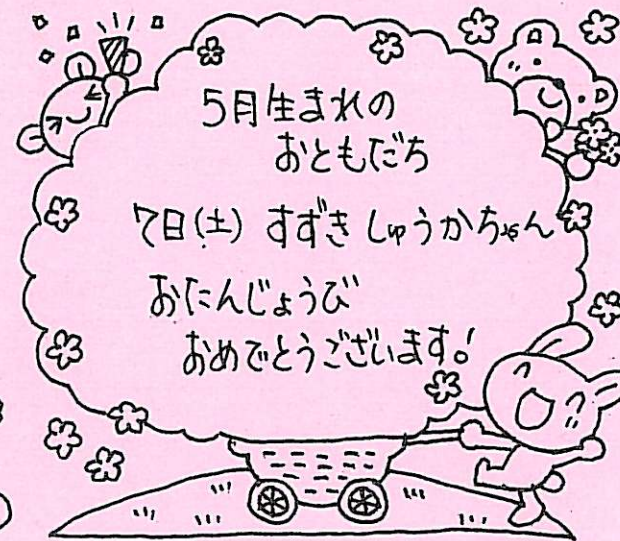 5月生まれの
おともだち
7日(土) すずき しゅうかちゃん
おたんじょうび
おめでとうございます!